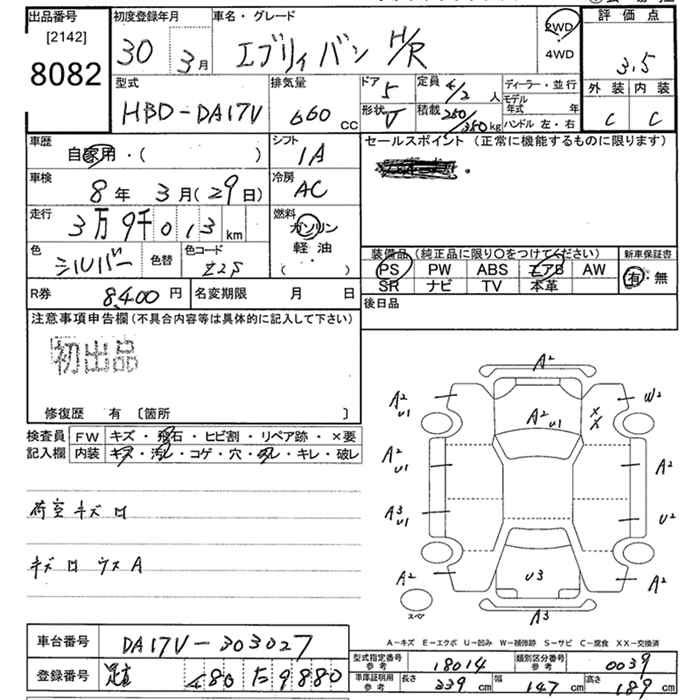 出品番号
[2142]
8082
初度登録年月
30年 3月
車名・グレード
エブリィバン H/R
2WD
4WD
評価点
3.5
外装 内装
C C
型式
HBD-DA17V
排気量
660 CC
ドア 5
形状 V
定員 4/2 人
積載 250/350 kg
ディーラー・並行
モデル年式 年
ハンドル 左・右
車歴
自家用・( )
シフト
IA
車検
8年 3月(29日)
冷房
AC
走行
3万9千013km
燃料
ガソリン
軽油
( )
色
シルバー
色替
色コード
Z2S
R券 8,400円
名変期限 月 日
セールスポイント (正常に機能するものに限ります)
装備品 (純正品に限り○をつけてください)
PS PW ABS エアB AW
SR ナビ TV 本革
新車保証書
有・無
後日品
注意事項申告欄 (不具合内容等は具体的に記入して下さい)
初出品
修復歴 有 〔箇所 〕
検査員
記入欄
FW キズ・飛石・ヒビ割・リペア跡・×要
内装 キズ・汚レ・コゲ・穴・ ・キレ・破レ
荷室キズ ロ
キズ ロ ウスA
A2
A2
U1
W2
A2
U1
XX
A2
U1
A2
A3
U1
U2
A2
U3
A2
スペア
A3
A-キズ E-エクボ U-凹み W-補修跡 S-サビ C-腐食 XX-交換済
車台番号 DA17V-303027
登録番号 480 9880
型式指定番号 参考 18014
類別区分番号 参考 0039
車庫証明用 参考 長さ 339cm 幅 147cm 高さ 189cm